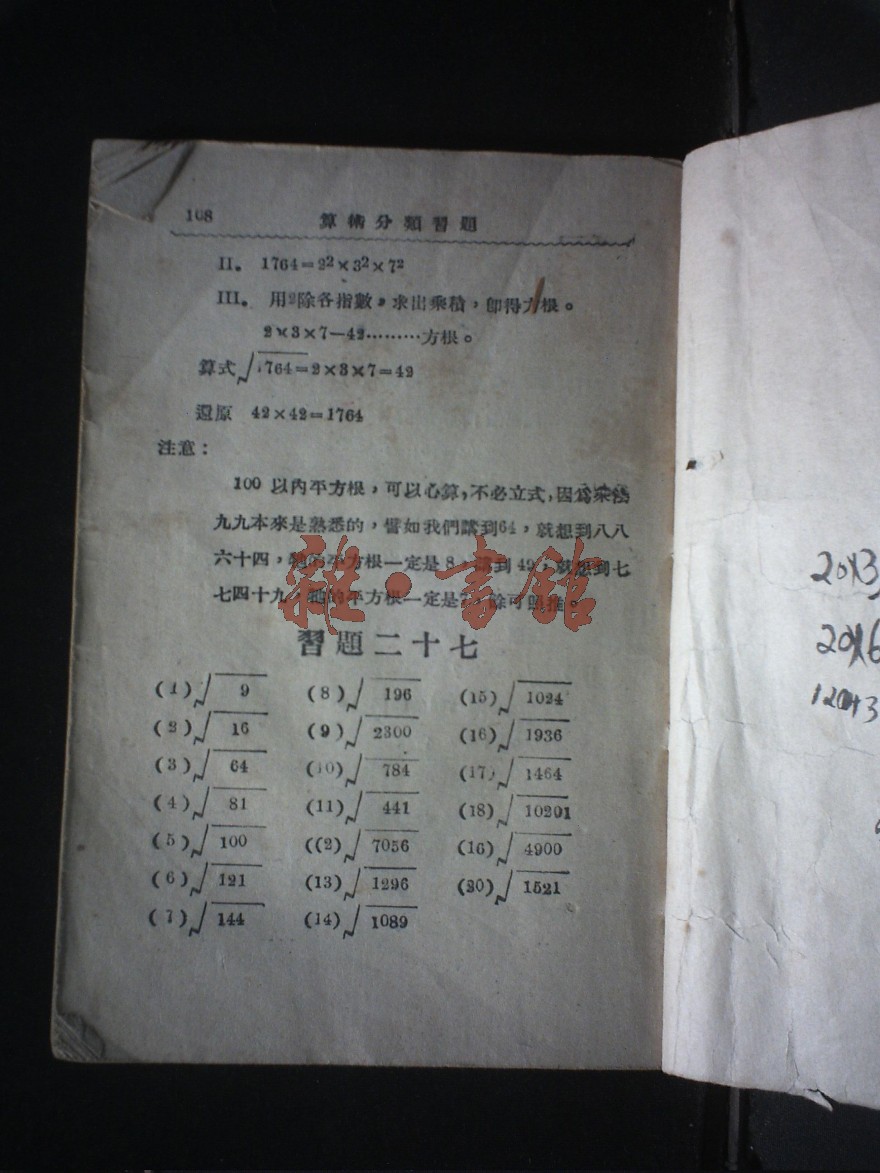 108 算術分類習題
II。 1764=2²×3²×7²
III。 用2除各指數，求出乘積，卽得方根。
2×3×7—42………方根。
算式√1764=2×3×7=42
還原 42×42=1764
注意：
100 以內平方根，可以心算，不必立式，因爲乘法
九九本來是熟悉的，譬如我們講到64，就想到八八
六十四，牠的平方根一定是8，講到49，就想到七
七四十九，牠的平方根一定是7，餘可照推。
雜·書館
習題二十七
(1)√9 (8)√196 (15)√1024
(2)√16 (9)√2300 (16)√1936
(3)√64 (10)√784 (17)√1464
(4)√81 (11)√441 (18)√10201
(5)√100 ((2)√7056 (16)√4900
(6)√121 (13)√1296 (20)√1521
(7)√144 (14)√1089
20×3
20×6